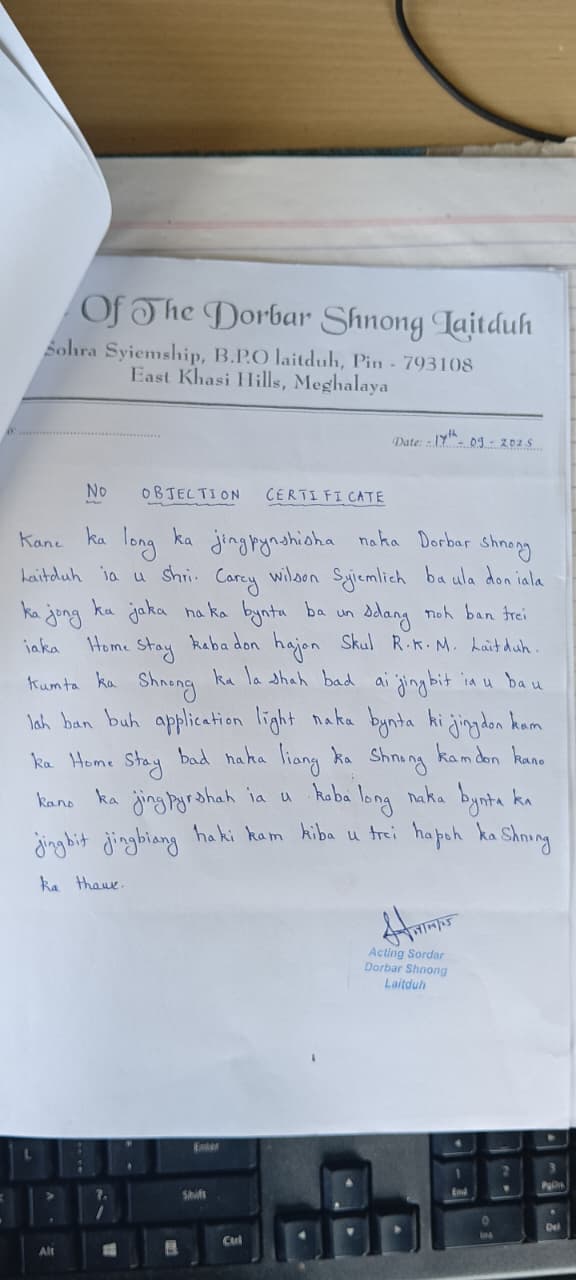 Of The Dorbar Shnong Laitduh
Sohra Syiemship, B.P.O laitduh, Pin - 793108
East Khasi Hills, Meghalaya
Date: - 17th - 09 - 2025
NO OBJECTION CERTIFICATE
Kane ka long ka jingpynshisha naka Dorbar Shnong
Laitduh ia u Shri. Carey Wilson Syiemlich ba ula don iala
ka jong ka jaka naka bynta ba un sdang noh ban trei
iaka Home Stay kaba don hajan Skul R.K.M. Laitduh.
Kumta ka Shnong ka la shah bad ai jingbit ia u ba u
lah ban buh application light naka bynta ki jingdon kam
ka Home Stay bad naka liang ka Shnong kam don kano
kano ka jingpyrshah ia u kaba long naka bynta ka
jingbit jingbiang haki kam kiba u trei hapoh ka Shnong
ka thaw.
Acting Sordar
Dorbar Shnong
Laitduh
Enter
Shift
Alt
Ctrl
1
End
2
3
PgDn
0
Ins
Del